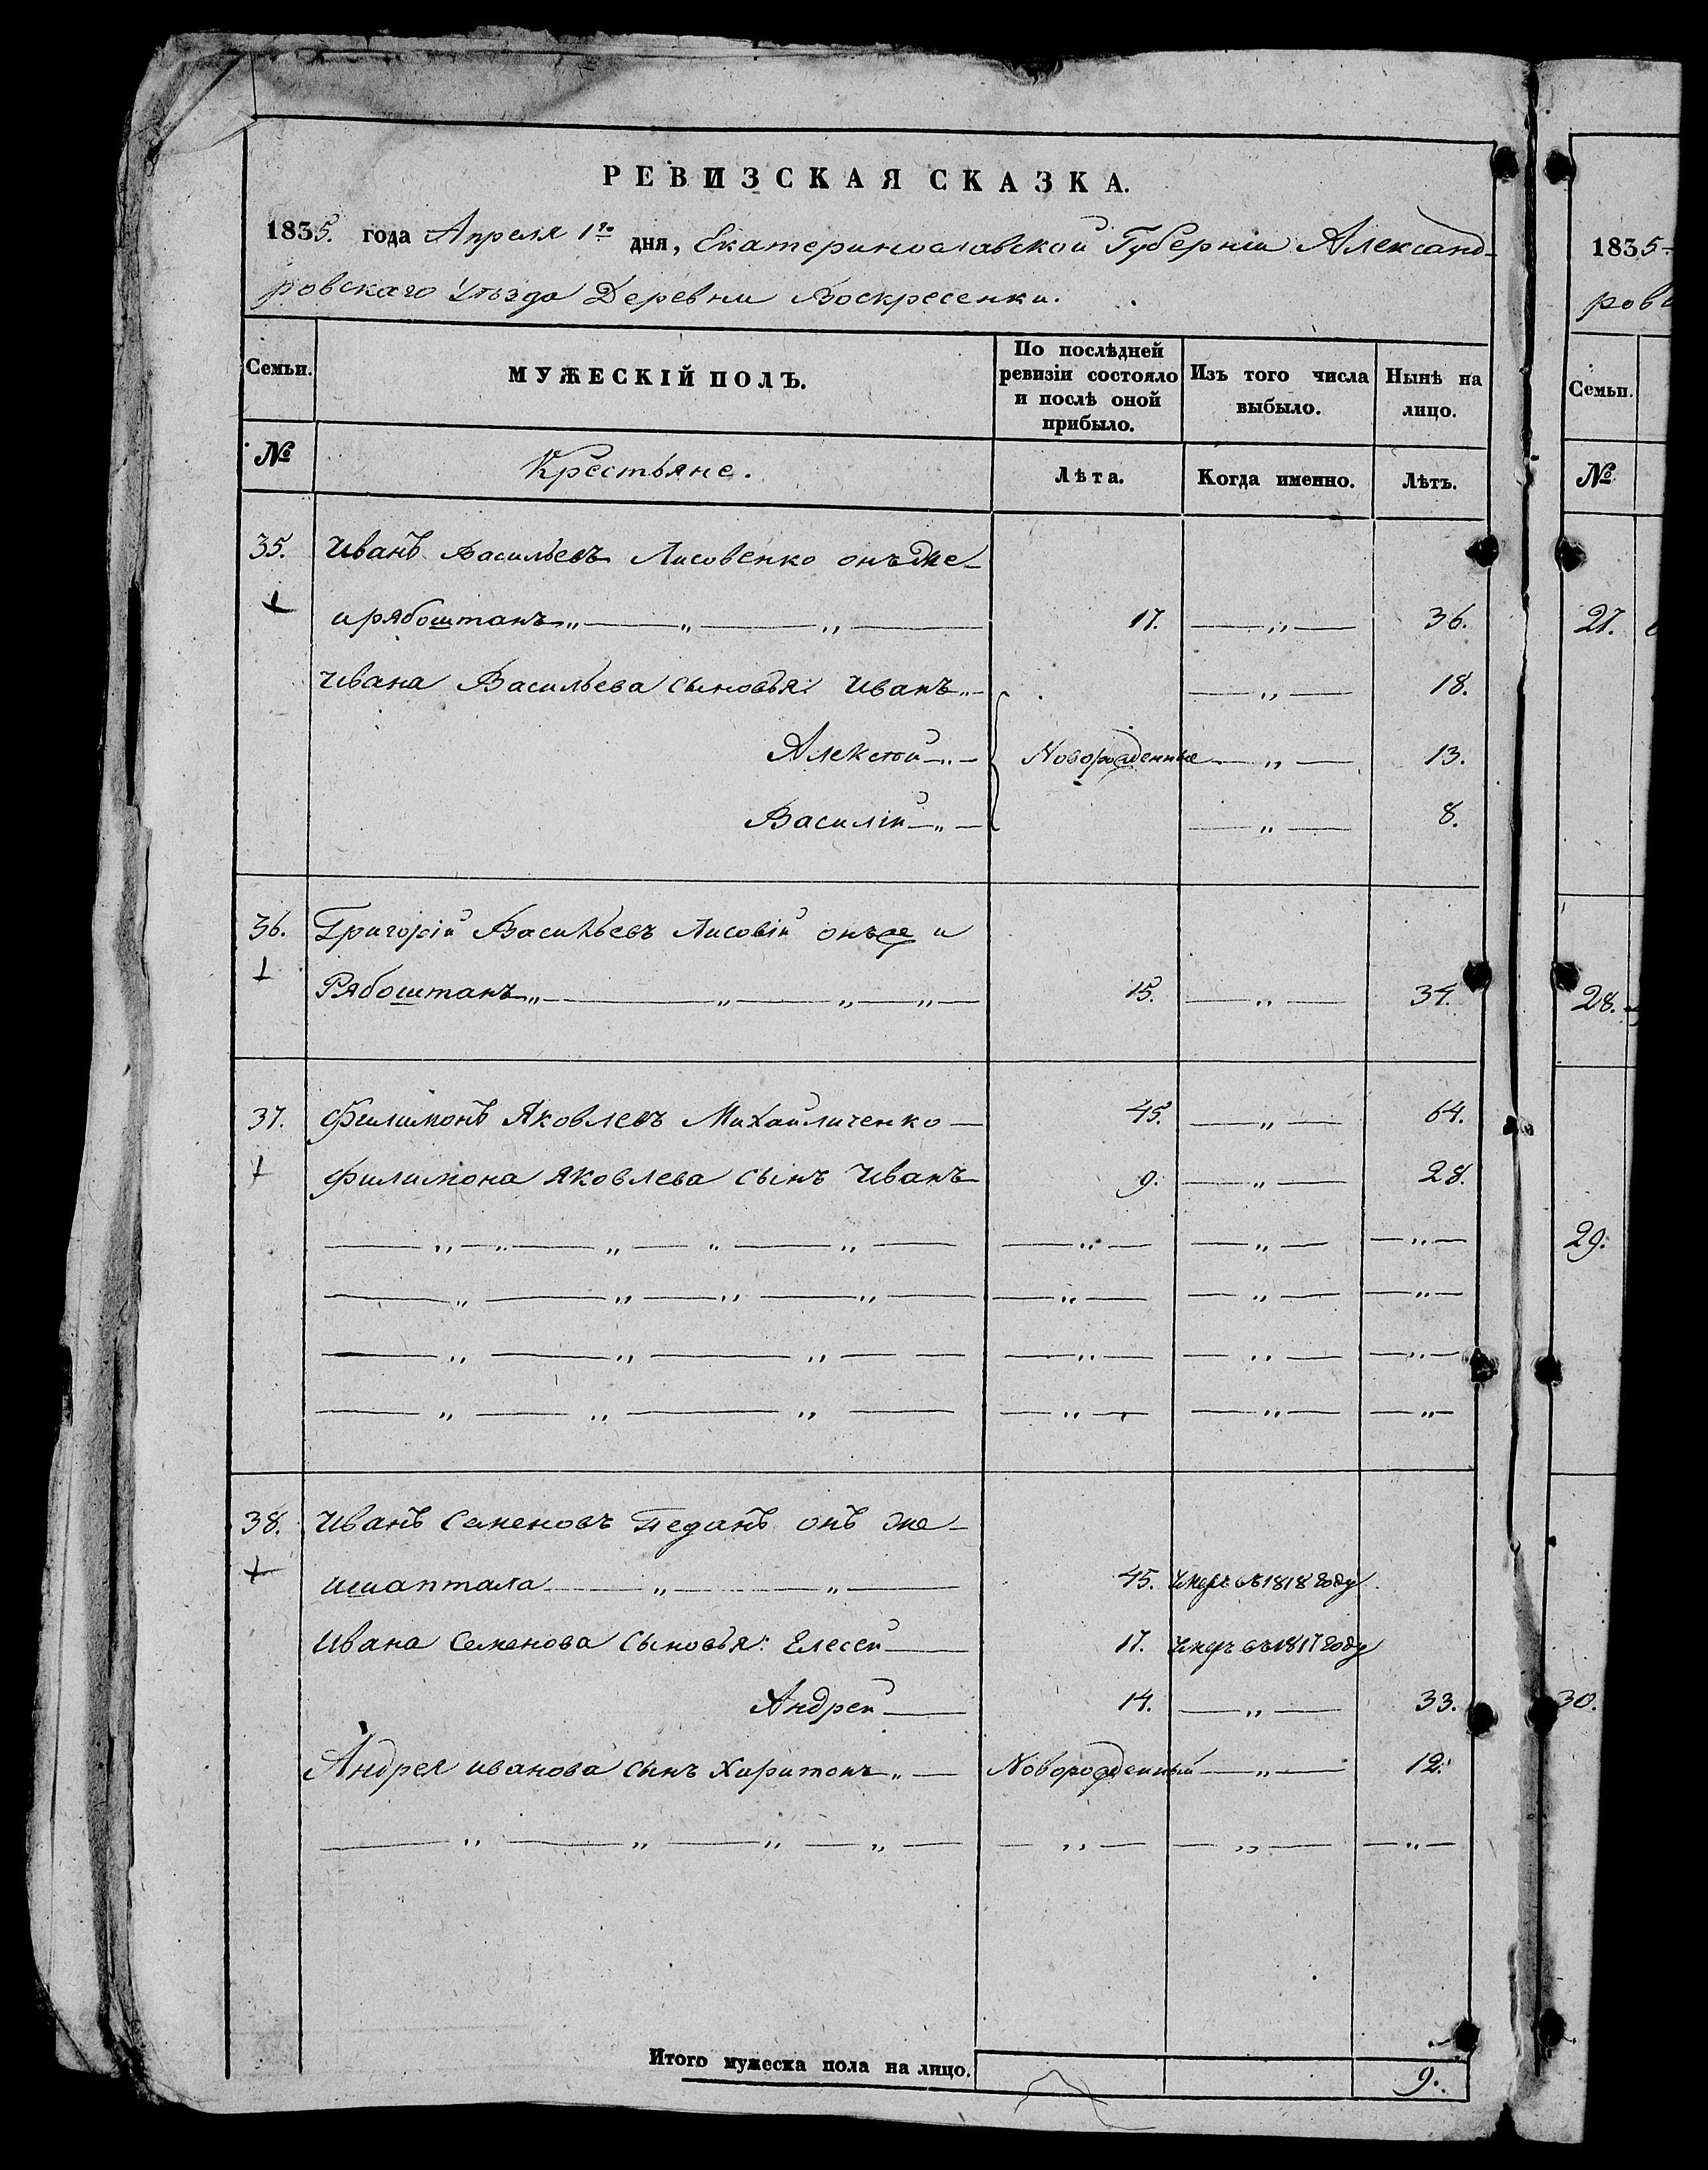 РЕВИЗСКАЯ СКАЗКА.
1835. года Апреля 1го дня, Екатеринославской Губерніи Александ-
ровскаго Уѣзда Деревни Воскресенки.
Семьи. МУЖЕСКІЙ ПОЛЪ. По послѣдней ревизіи состояло и послѣ оной прибыло. Изъ того числа выбыло. Нынѣ на лицо.
№ Крестьяне. Лѣта. Когда именно. Лѣтъ.
35. Иванъ Васильевъ Лисовенко онъ же-
и рябоштанъ 17. 36.
Ивана Васильева сыновья: Иванъ 18.
Алексѣй Новорожденные 13.
Василій 8.
36. Григорій Васильевъ Лисовій онъ же и
Рябоштанъ 15. 34.
37. Филимонъ Яковлевъ Михайличенко 45. 64.
Филимона Яковлева сынъ Иванъ 9. 28.
38. Иванъ Семеновъ Педанъ онъ же-
ишаптала 45. Умеръ въ 1818 году.
Ивана Семенова сыновья: Елесей 17. Умеръ въ 1817 году
Андрей 14. 33.
Андрея иванова сынъ Харитонъ Новорожденный 12.
Итого мужеска пола на лицо. 9.
1835
ров
Семьи.
№
27.
28.
29.
30.